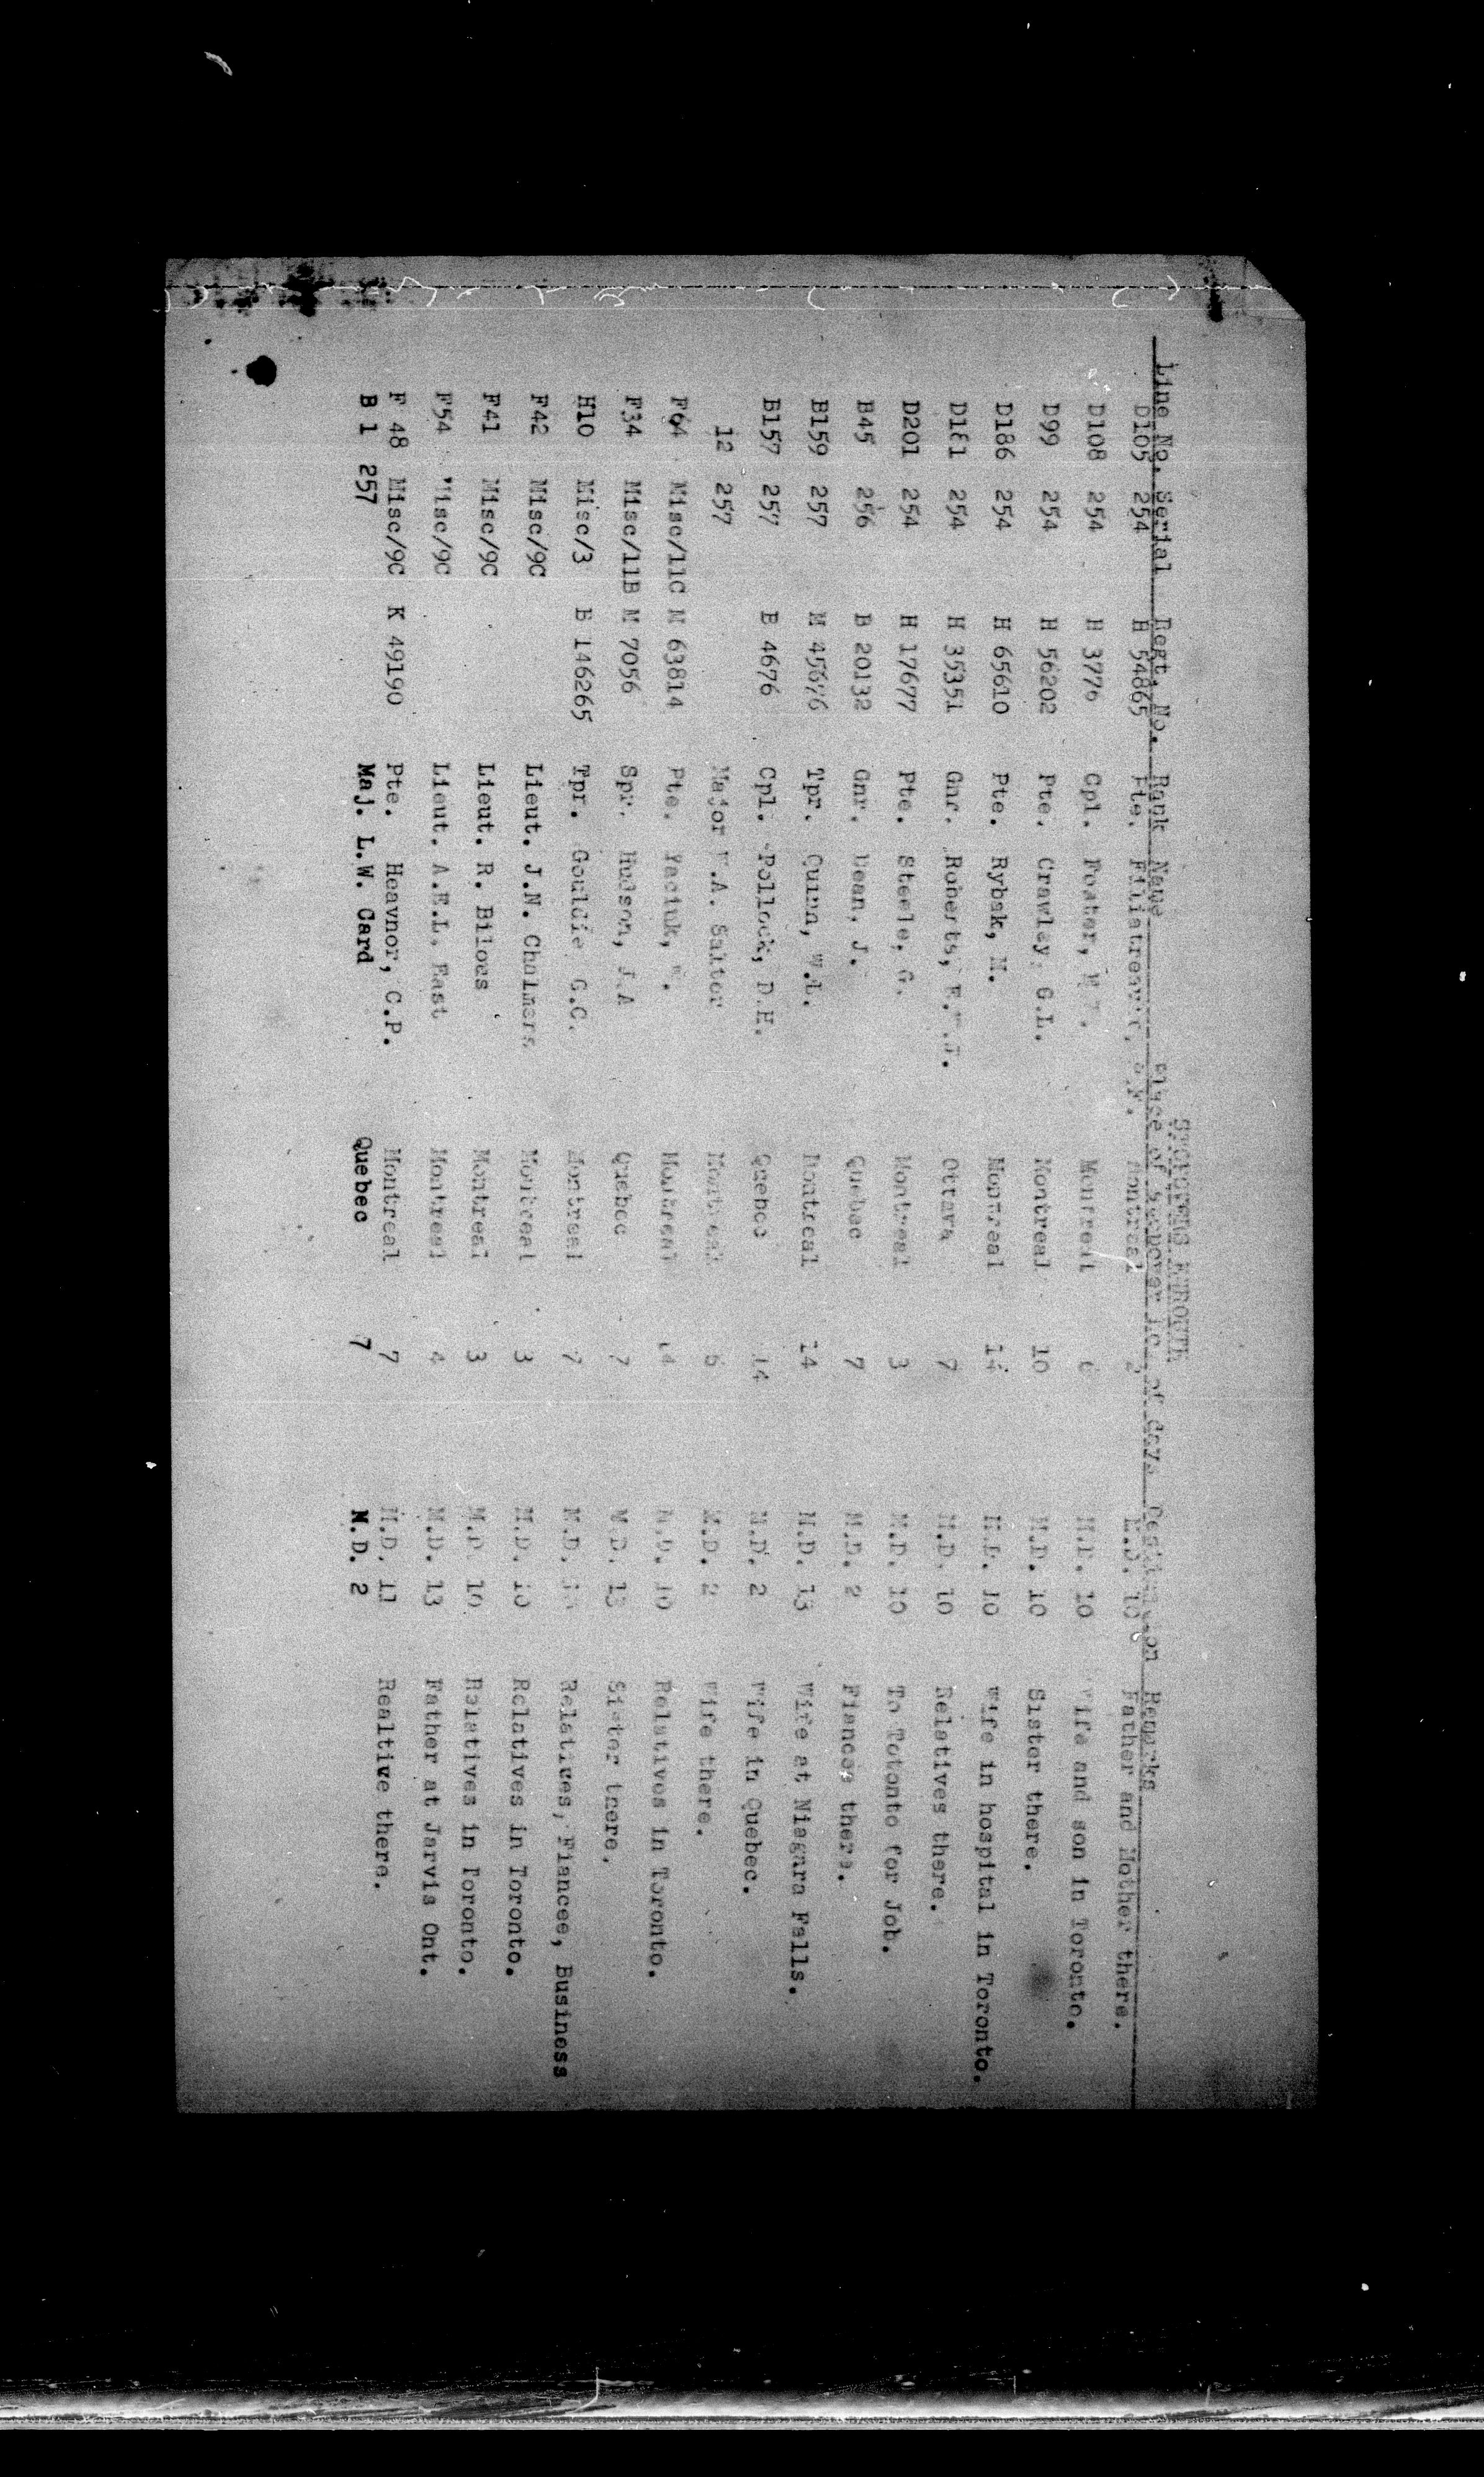 STOPOVERS ENROUTE
Line No. Serial Regt. No. Rank Name Place of Stopover No. of days Destination Remarks
D105 254 H 54865 Pte. Montreal 2 M.D. 10 Father and Mother there.
D108 254 H 3776 Cpl. Foster, Montreal 6 M.D. 10 Wife and son in Toronto.
D99 254 H 56202 Pte. Crawley, G.L. Montreal 10 M.D. 10 Sister there.
D186 254 H 65610 Pte. Rybak, M. Montreal 14 M.D. 10 Wife in hospital in Toronto.
D181 254 H 35351 Gnr. Roberts, Ottawa 7 M.D. 10 Relatives there.
D201 254 H 17677 Pte. Steele, G. Montreal 3 M.D. 10 To Totonto for Job.
B45 256 B 20132 Gnr. Dean, J. Quebec 7 M.D. 2 Fiancee there.
B159 257 M 45676 Tpr. Quinn, W.L. Montreal 14 M.D. 13 Wife at Niagara Falls.
B157 257 B 4676 Cpl. Pollock, D.H. Quebec 14 M.D. 2 Wife in Quebec.
12 257 Major W.A. Salter Montreal 5 M.D. 2 Wife there.
F64 Misc/11C M 63814 Pte. Yaciuk, Montreal 14 M.D. 10 Relatives in Toronto.
F34 Misc/11B M 7056 Spr. Hudson, J.A Quebec 7 M.D. 13 Sister there.
H10 Misc/3 B 146265 Tpr. Gouldie G.C. Montreal 7 M.D. Relatives, Fiancee, Business
F42 Misc/9C Lieut. J.N. Chalmers Montreal 3 M.D. 10 Relatives in Toronto.
F41 Misc/9C Lieut. R. Bilous Montreal 3 M.D. 10 Relatives in Toronto.
F54 Misc/9C Lieut. A.E.L. East Montreal 4 M.D. 13 Father at Jarvis Ont.
F 48 Misc/9C K 49190 Pte. Heavnor, C.P. Montreal 7 M.D. 11 Realtive there.
B 1 257 Maj. L.W. Card Quebec 7 M.D. 2